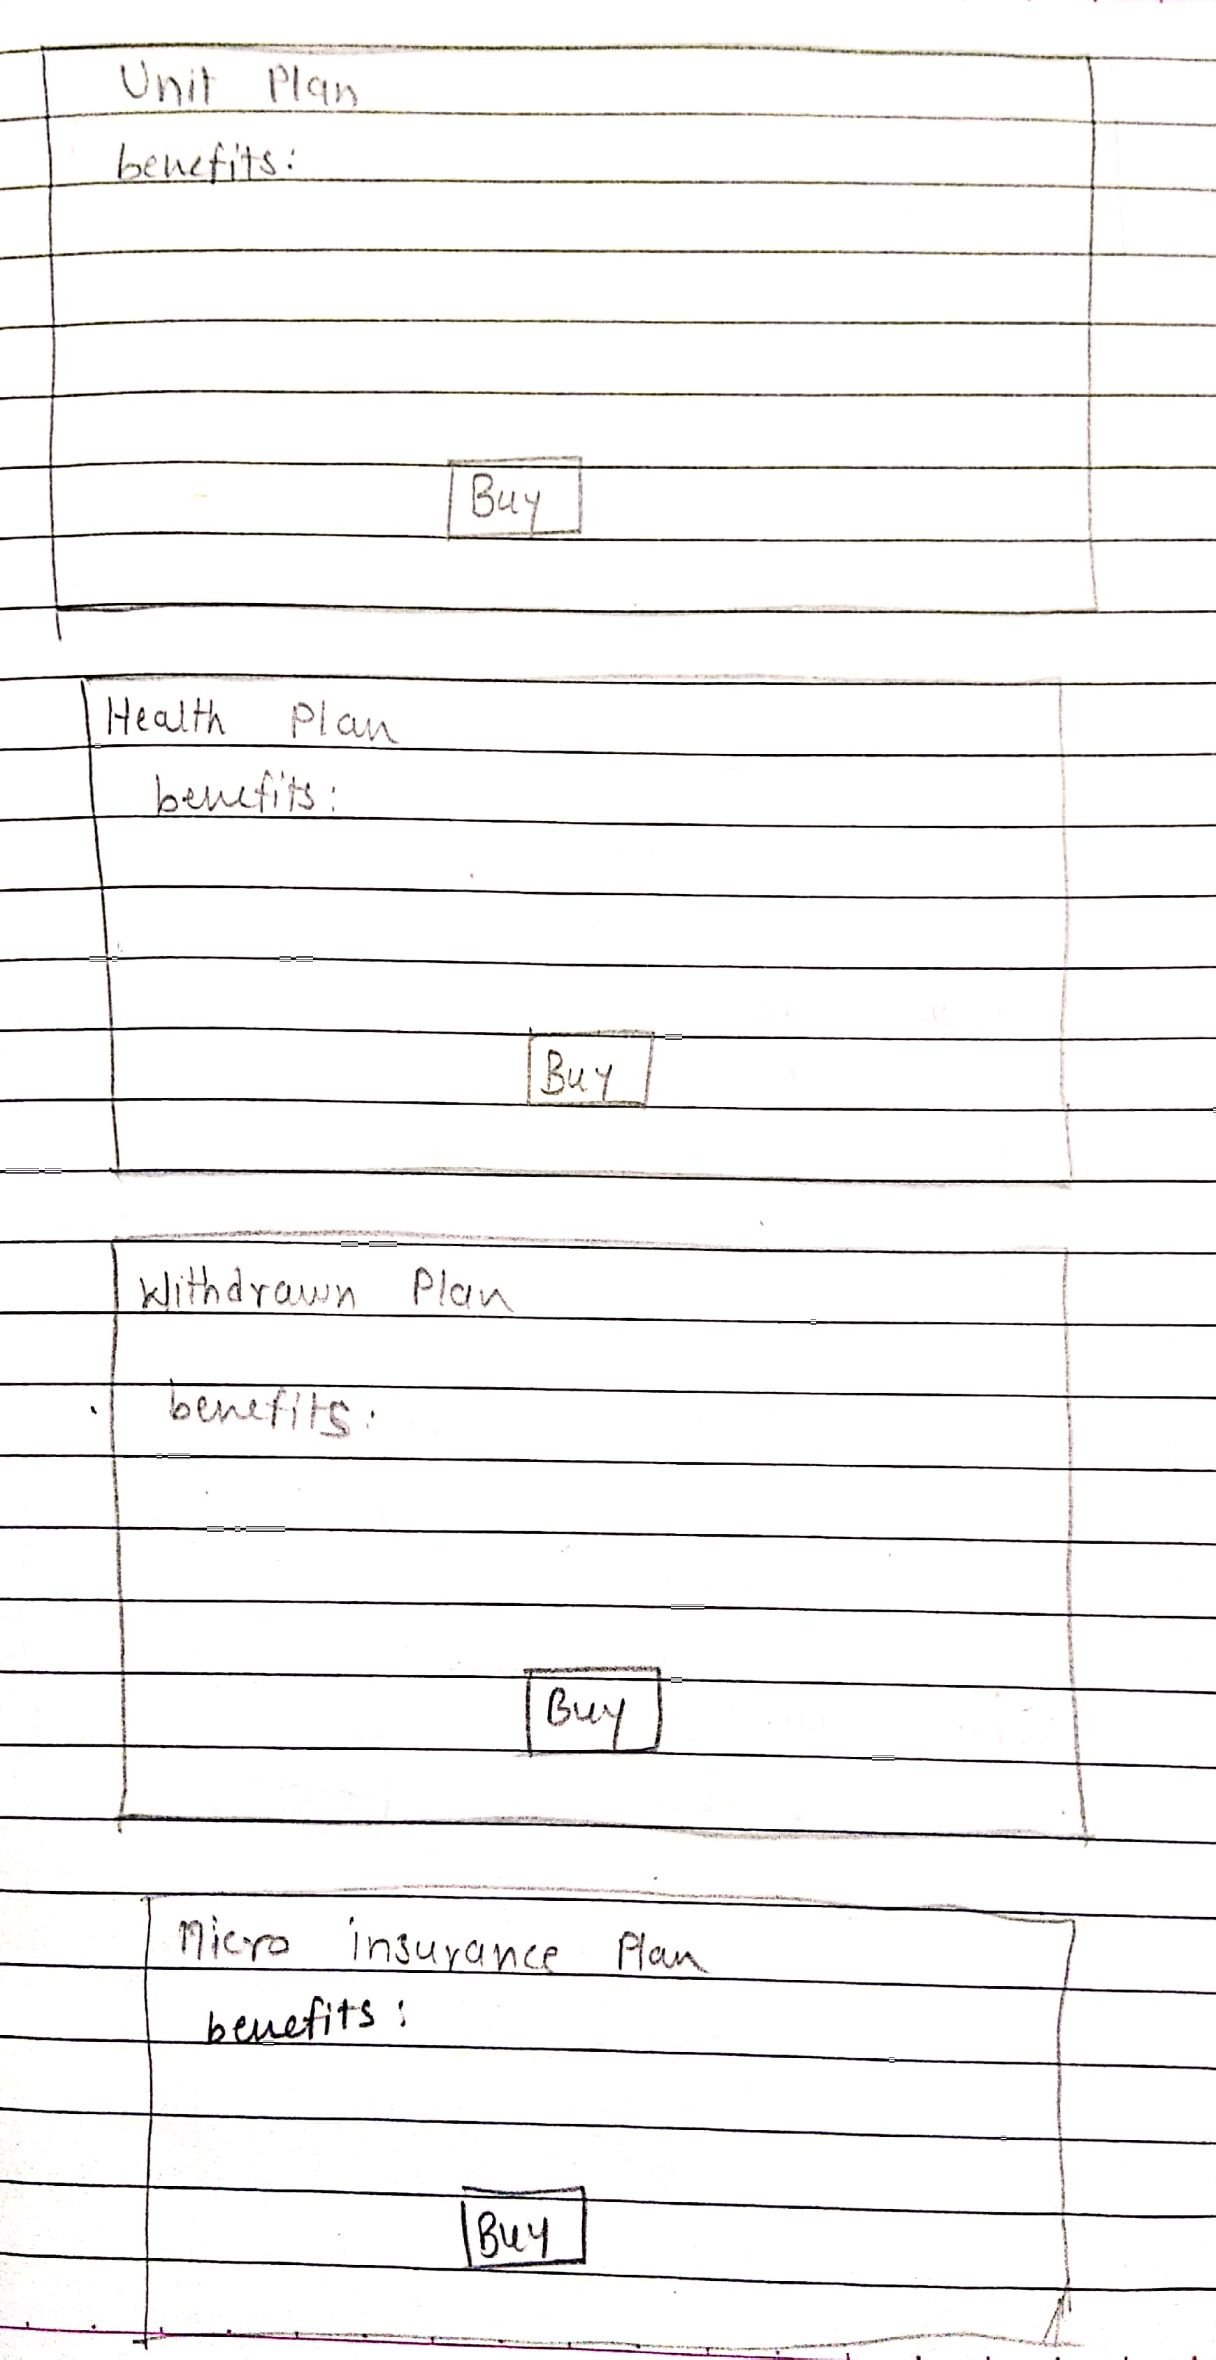 Unit Plan
benefits:
Buy
Health Plan
benefits:
Buy
Withdrawn Plan
benefits:
Buy
Micro insurance Plan
benefits:
Buy